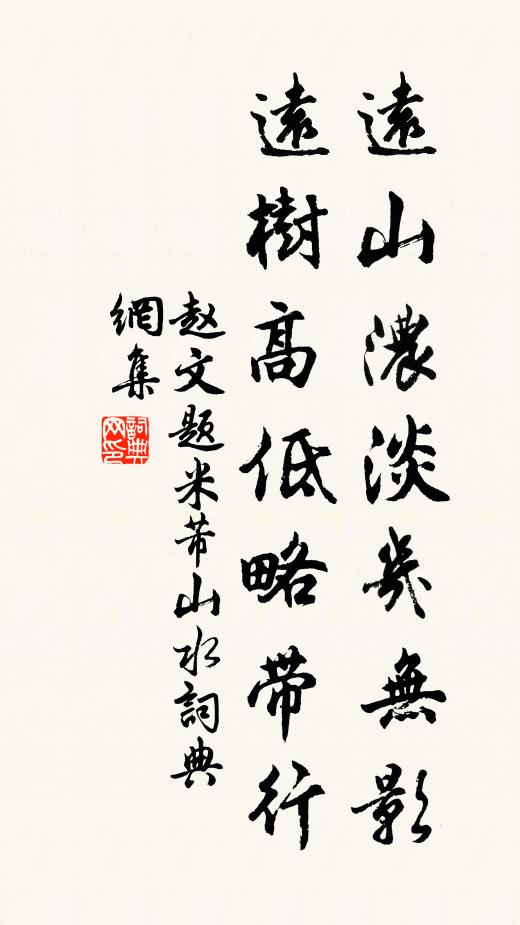 遠山濃淡幾無影
遠樹高低略帶行
赵文题米芾山水詞典
網集
詞典
网印